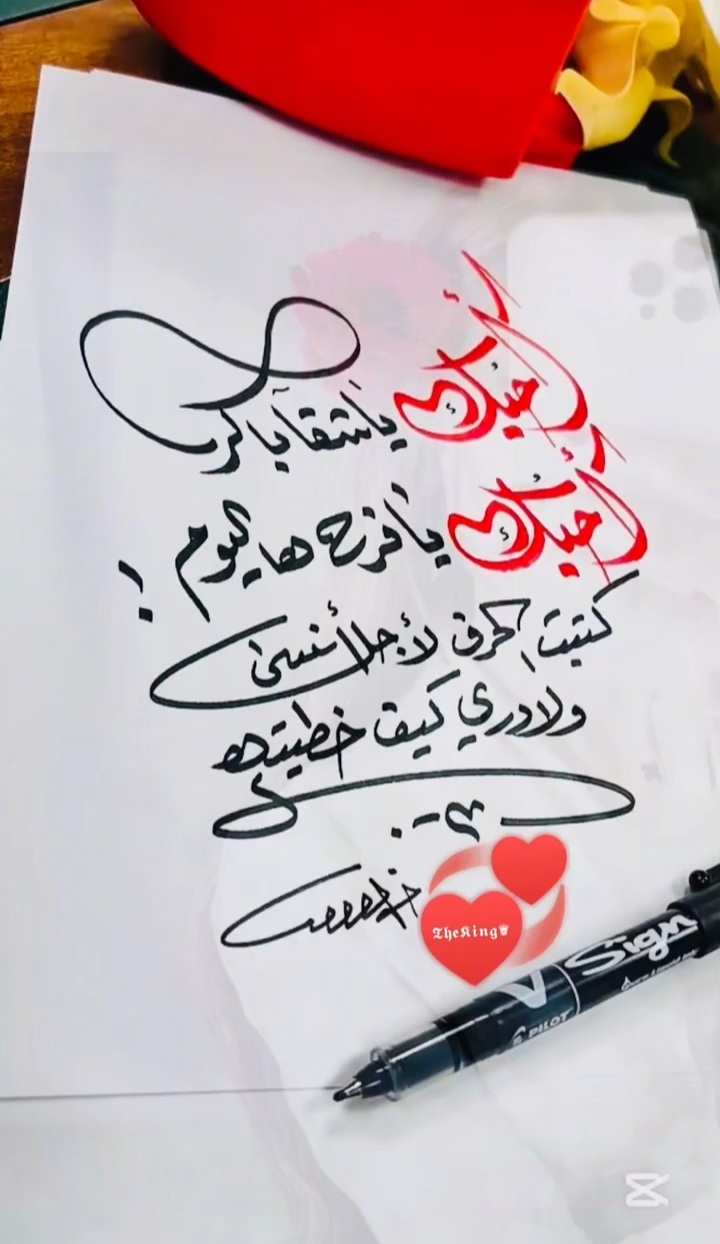 أحبك يا شقا باكر
أحبك يا فرح هاليوم !
كتبت الحرف لأجل أنسى
ولا دري كيف خطيته
TheKing♛
V Sign
PILOT